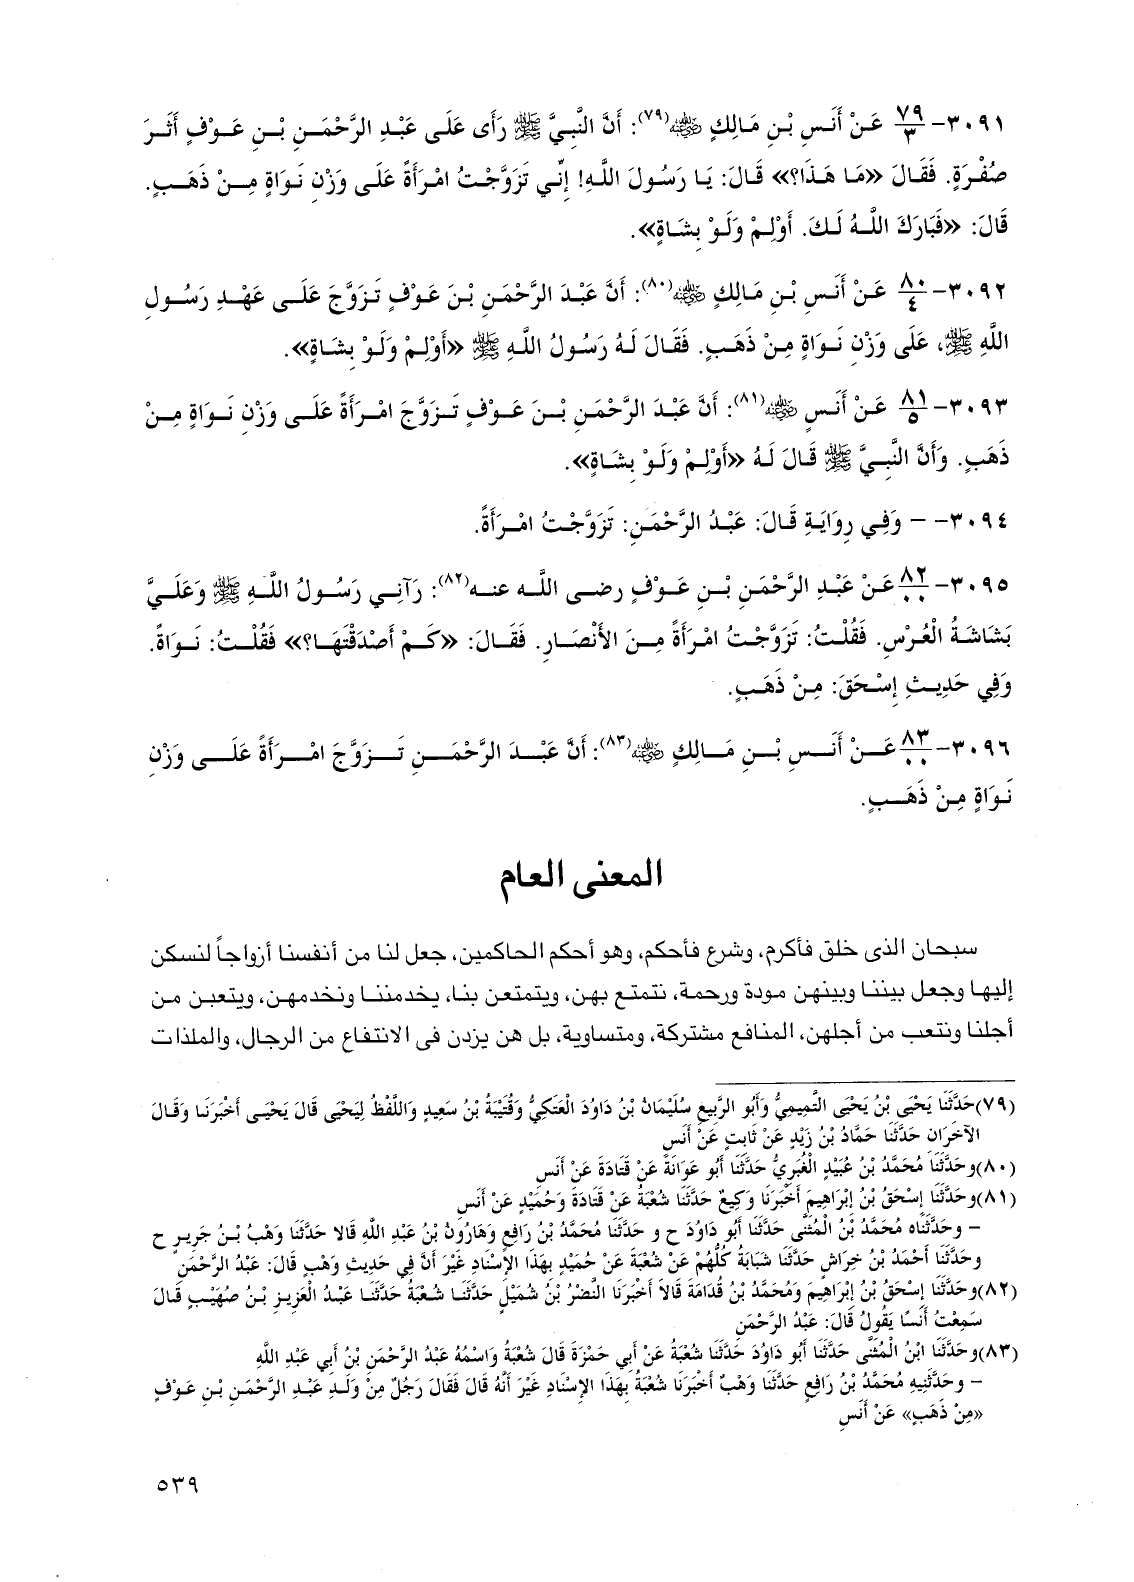 ٣٠٩١- ٧٩/٣ عَنْ أَنَسِ بْنِ مَالِكٍ ﷺ(٧٩): أَنَّ النَّبِيَّ ﷺ رَأَى عَلَى عَبْدِ الرَّحْمَنِ بْنِ عَوْفٍ أَثَرَ
صُفْرَةٍ. فَقَالَ «مَا هَذَا؟» قَالَ: يَا رَسُولَ اللَّهِ! إِنِّي تَزَوَّجْتُ امْرَأَةً عَلَى وَزْنِ نَوَاةٍ مِنْ ذَهَبٍ.
قَالَ: «فَبَارَكَ اللَّهُ لَكَ. أَوْلِمْ وَلَوْ بِشَاةٍ».
٣٠٩٢- ٨٠/٤ عَنْ أَنَسِ بْنِ مَالِكٍ ﷺ(٨٠): أَنَّ عَبْدَ الرَّحْمَنِ بْنَ عَوْفٍ تَزَوَّجَ عَلَى عَهْدِ رَسُولِ
اللَّهِ ﷺ، عَلَى وَزْنِ نَوَاةٍ مِنْ ذَهَبٍ. فَقَالَ لَهُ رَسُولُ اللَّهِ ﷺ «أَوْلِمْ وَلَوْ بِشَاةٍ».
٣٠٩٣- ٨١/٥ عَنْ أَنَسٍ ﷺ(٨١): أَنَّ عَبْدَ الرَّحْمَنِ بْنَ عَوْفٍ تَزَوَّجَ امْرَأَةً عَلَى وَزْنِ نَوَاةٍ مِنْ
ذَهَبٍ. وَأَنَّ النَّبِيَّ ﷺ قَالَ لَهُ «أَوْلِمْ وَلَوْ بِشَاةٍ».
٣٠٩٤- – وَفِي رِوَايَةِ قَالَ: عَبْدُ الرَّحْمَنِ: تَزَوَّجْتُ امْرَأَةً.
٣٠٩٥- ٨٢/.. عَنْ عَبْدِ الرَّحْمَنِ بْنِ عَوْفٍ رضى اللَّه عنه(٨٢): رَآنِي رَسُولُ اللَّهِ ﷺ وَعَلَيَّ
بَشَاشَةُ الْعُرْسِ. فَقُلْتُ: تَزَوَّجْتُ امْرَأَةً مِنَ الأَنْصَارِ. فَقَالَ: «كَمْ أَصْدَقْتَهَا؟» فَقُلْتُ: نَوَاةً.
وَفِي حَدِيثِ إِسْحَقَ: مِنْ ذَهَبٍ.
٣٠٩٦- ٨٣/.. عَنْ أَنَسِ بْنِ مَالِكٍ ﷺ(٨٣): أَنَّ عَبْدَ الرَّحْمَنِ تَزَوَّجَ امْرَأَةً عَلَى وَزْنِ
نَوَاةٍ مِنْ ذَهَبٍ.
المعنى العام
سبحان الذى خلق فأكرم، وشرع فأحكم، وهو أحكم الحاكمين، جعل لنا من أنفسنا أزواجاً لنسكن
إليها وجعل بيننا وبينهن مودة ورحمة، نتمتع بهن، ويتمتعن بنا، يخدمننا ونخدمهن، ويتعبن من
أجلنا ونتعب من أجلهن، المنافع مشتركة، ومتساوية، بل هن يزدن فى الانتفاع من الرجال، والملذات
(٧٩)حَدَّثَنَا يَحْيَى بْنُ يَحْيَى التَّمِيمِيُّ وَأَبُو الرَّبِيعِ سُلَيْمَانُ بْنُ دَاوُدَ الْعَتَكِيُّ وَقُتَيْبَةُ بْنُ سَعِيدٍ وَاللَّفْظُ لِيَحْيَى قَالَ يَحْيَى أَخْبَرَنَا وَقَالَ
الآخَرَانِ حَدَّثَنَا حَمَّادُ بْنُ زَيْدٍ عَنْ ثَابِتٍ عَنْ أَنَسِ
(٨٠)وحَدَّثَنَا مُحَمَّدُ بْنُ عُبَيْدٍ الْغُبَرِيُّ حَدَّثَنَا أَبُو عَوَانَةَ عَنْ قَتَادَةَ عَنْ أَنَسِ
(٨١)وحَدَّثَنَا إِسْحَقُ بْنُ إِبْرَاهِيمَ أَخْبَرَنَا وَكِيعٌ حَدَّثَنَا شُعْبَةُ عَنْ قَتَادَةَ وَحُمَيْدٍ عَنْ أَنَسِ
– وحَدَّثَنَاه مُحَمَّدُ بْنُ الْمُثَنَّى حَدَّثَنَا أَبُو دَاوُدَ ح و حَدَّثَنَا مُحَمَّدُ بْنُ رَافِعٍ وَهَارُونُ بْنُ عَبْدِ اللَّهِ قَالا حَدَّثَنَا وَهْبُ بْنُ جَرِيرٍ ح
وحَدَّثَنَا أَحْمَدُ بْنُ خِرَاشٍ حَدَّثَنَا شَبَابَةُ كُلُّهُمْ عَنْ شُعْبَةَ عَنْ حُمَيْدٍ بِهَذَا الإِسْنَادِ غَيْرَ أَنَّ فِي حَدِيثِ وَهْبٍ قَالَ: عَبْدُ الرَّحْمَنِ
(٨٢)وحَدَّثَنَا إِسْحَقُ بْنُ إِبْرَاهِيمَ وَمُحَمَّدُ بْنُ قُدَامَةَ قَالاَ أَخْبَرَنَا النَّضْرُ بْنُ شُمَيْلٍ حَدَّثَنَا شُعْبَةُ حَدَّثَنَا عَبْدُ الْعَزِيزِ بْنُ صُهَيْبٍ قَالَ
سَمِعْتُ أَنَسًا يَقُولُ قَالَ: عَبْدُ الرَّحْمَنِ
(٨٣)وحَدَّثَنَا ابْنُ الْمُثَنَّى حَدَّثَنَا أَبُو دَاوُدَ حَدَّثَنَا شُعْبَةُ عَنْ أَبِي حَمْزَةَ قَالَ شُعْبَةُ وَاسْمُهُ عَبْدُ الرَّحْمَنِ بْنُ أَبِي عَبْدِ اللَّهِ
– وحَدَّثَنِيهِ مُحَمَّدُ بْنُ رَافِعٍ حَدَّثَنَا وَهْبٌ أَخْبَرَنَا شُعْبَةُ بِهَذَا الإِسْنَادِ غَيْرَ أَنَّهُ قَالَ فَقَالَ رَجُلٌ مِنْ وَلَدِ عَبْدِ الرَّحْمَنِ بْنِ عَوْفٍ
«مِنْ ذَهَبٍ» عَنْ أَنَسِ
٥٣٩